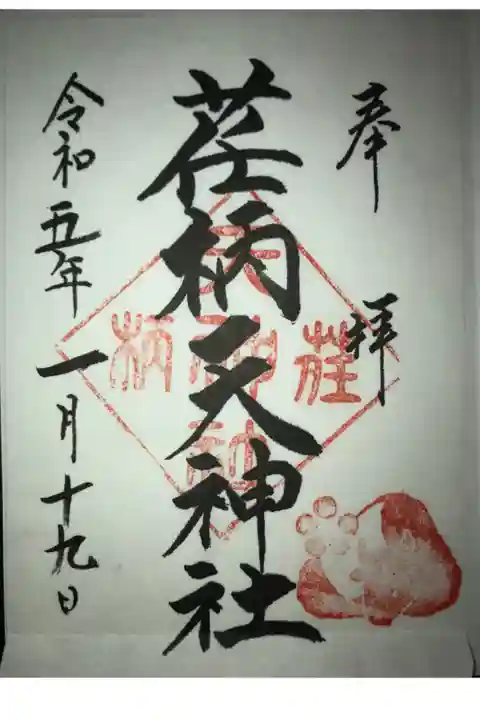 奉拝
荏柄天神社
令和五年一月十九日
荏柄天神社